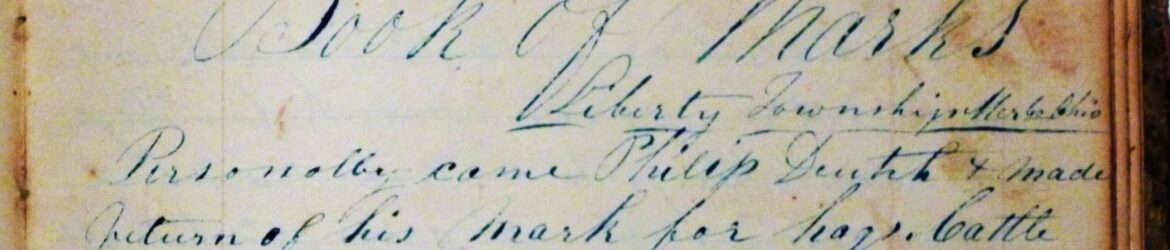 Book of Marks
Liberty Township Mer Co Ohio
Personolly came Philip Deutsh & made
return of his Mark for hogs Cattle